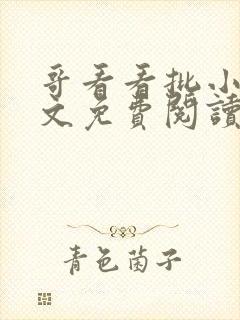 哥看看批小
文免費閱讀
青色菌子